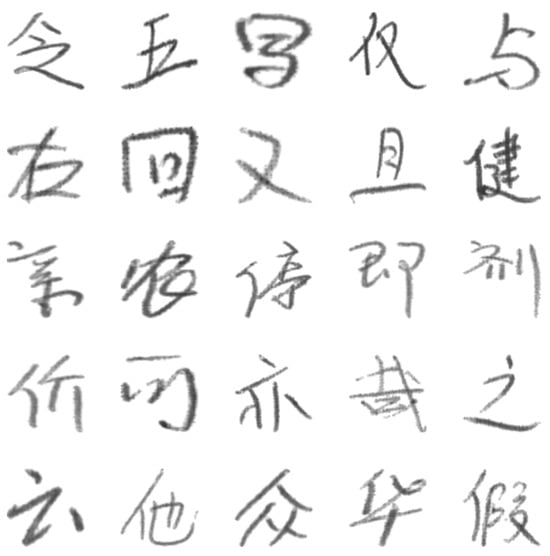 五写仅与
右回又且健
亲农停即剂
价可亦哉之
云他众华假